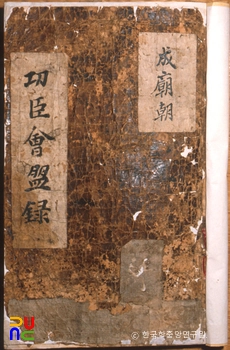 成廟朝
功臣會盟録
ⓒ 한국학중앙연구원